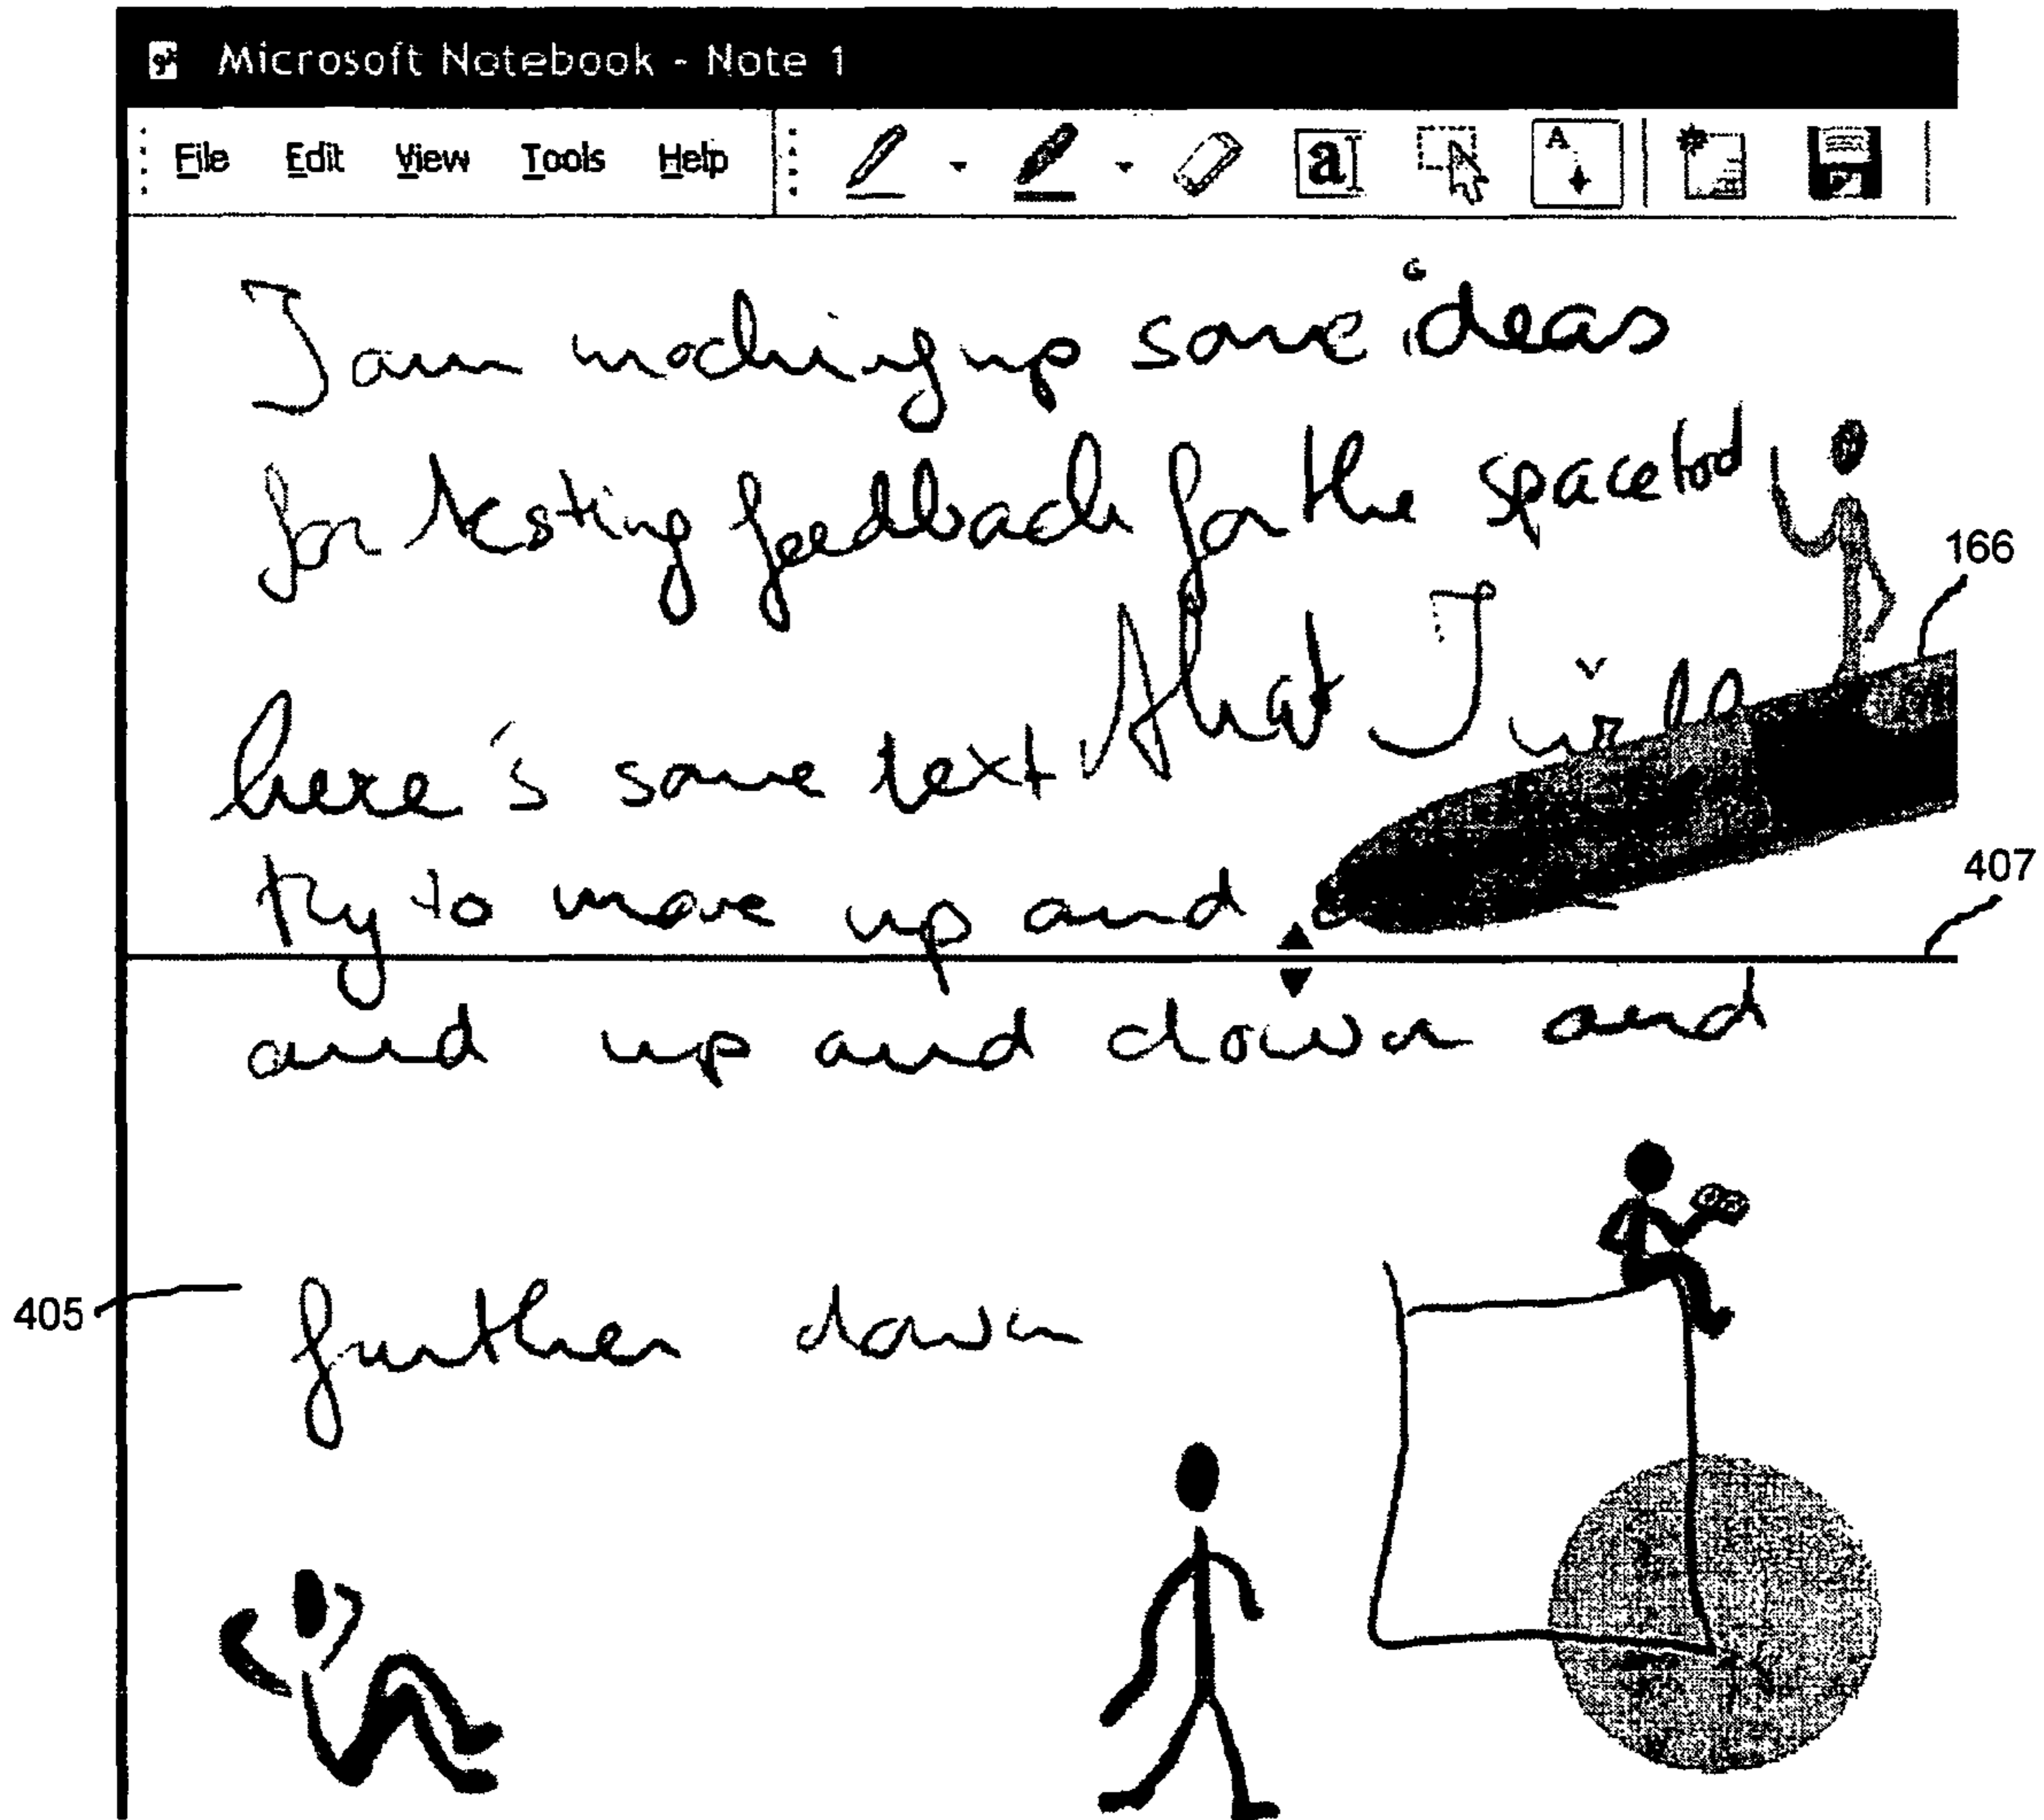 Microsoft Notebook - Note 1
File Edit View Tools Help
a
A
I am mocking up some ideas
for testing feedback for the spacetool
166
here's some text that I will
407
try to move up and
and up and down and
405
further down